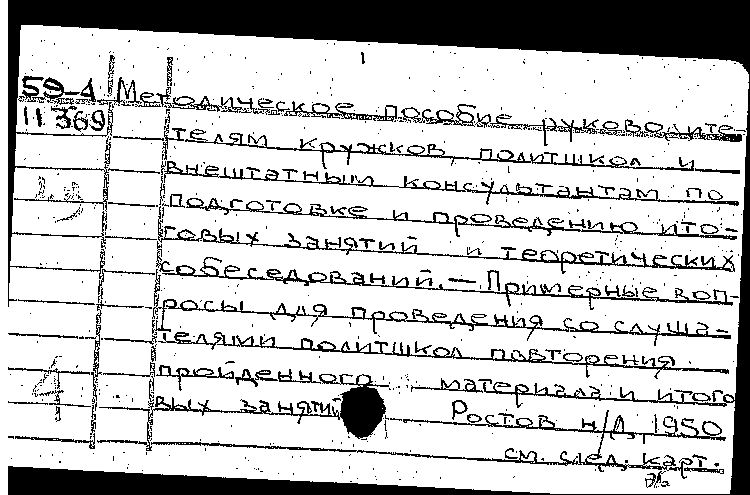 1
59-4 Методическое пособие руководите-
11369 телям кружков, политшкол и
внештатным консультантам по
подготовке и проведению ито-
говых занятий и теоретических
собеседований. — Примерные воп-
росы для проведения со слуша-
телями политшкол повторения
пройденного материала и итого
вых занятий. Ростов н/Д, 1950
см. след. карт.